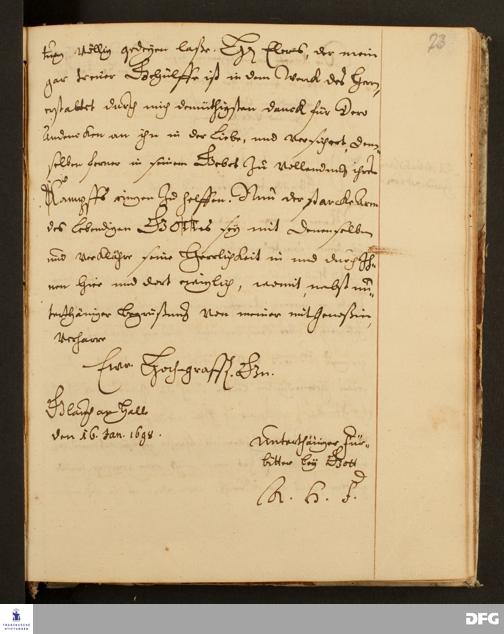 23
tung völlig gedeyen laße. Hr. Elers, der mein
gar treuer Gehülffe ist in dem Werk des Herrn
erstattet durch mich demüthigsten danck für Dero
Andencken an ihn in der Liebe, und versichert, dem-
selben ferner in seinem Gebet zu Vollendung ihres
Kampffs ringen zu helffen. Nun der starcke Arm
des lebendigen Gottes sey mit Denenselben
und verkläre seine Herrlichkeit in und durch Ih-
nen hier und dort ewiglich, womit, nebst un-
terthäniger begrüßung von meiner mitgenoßin,
verharre
Ewr. Hoch-gräffl. Gn.
Glauch an Halle
den 16. Jan. 1698.
Unterthäniger Für-
bitter bey Gott
A. H. F.
FRANCKESCHE
STIFTUNGEN
DFG